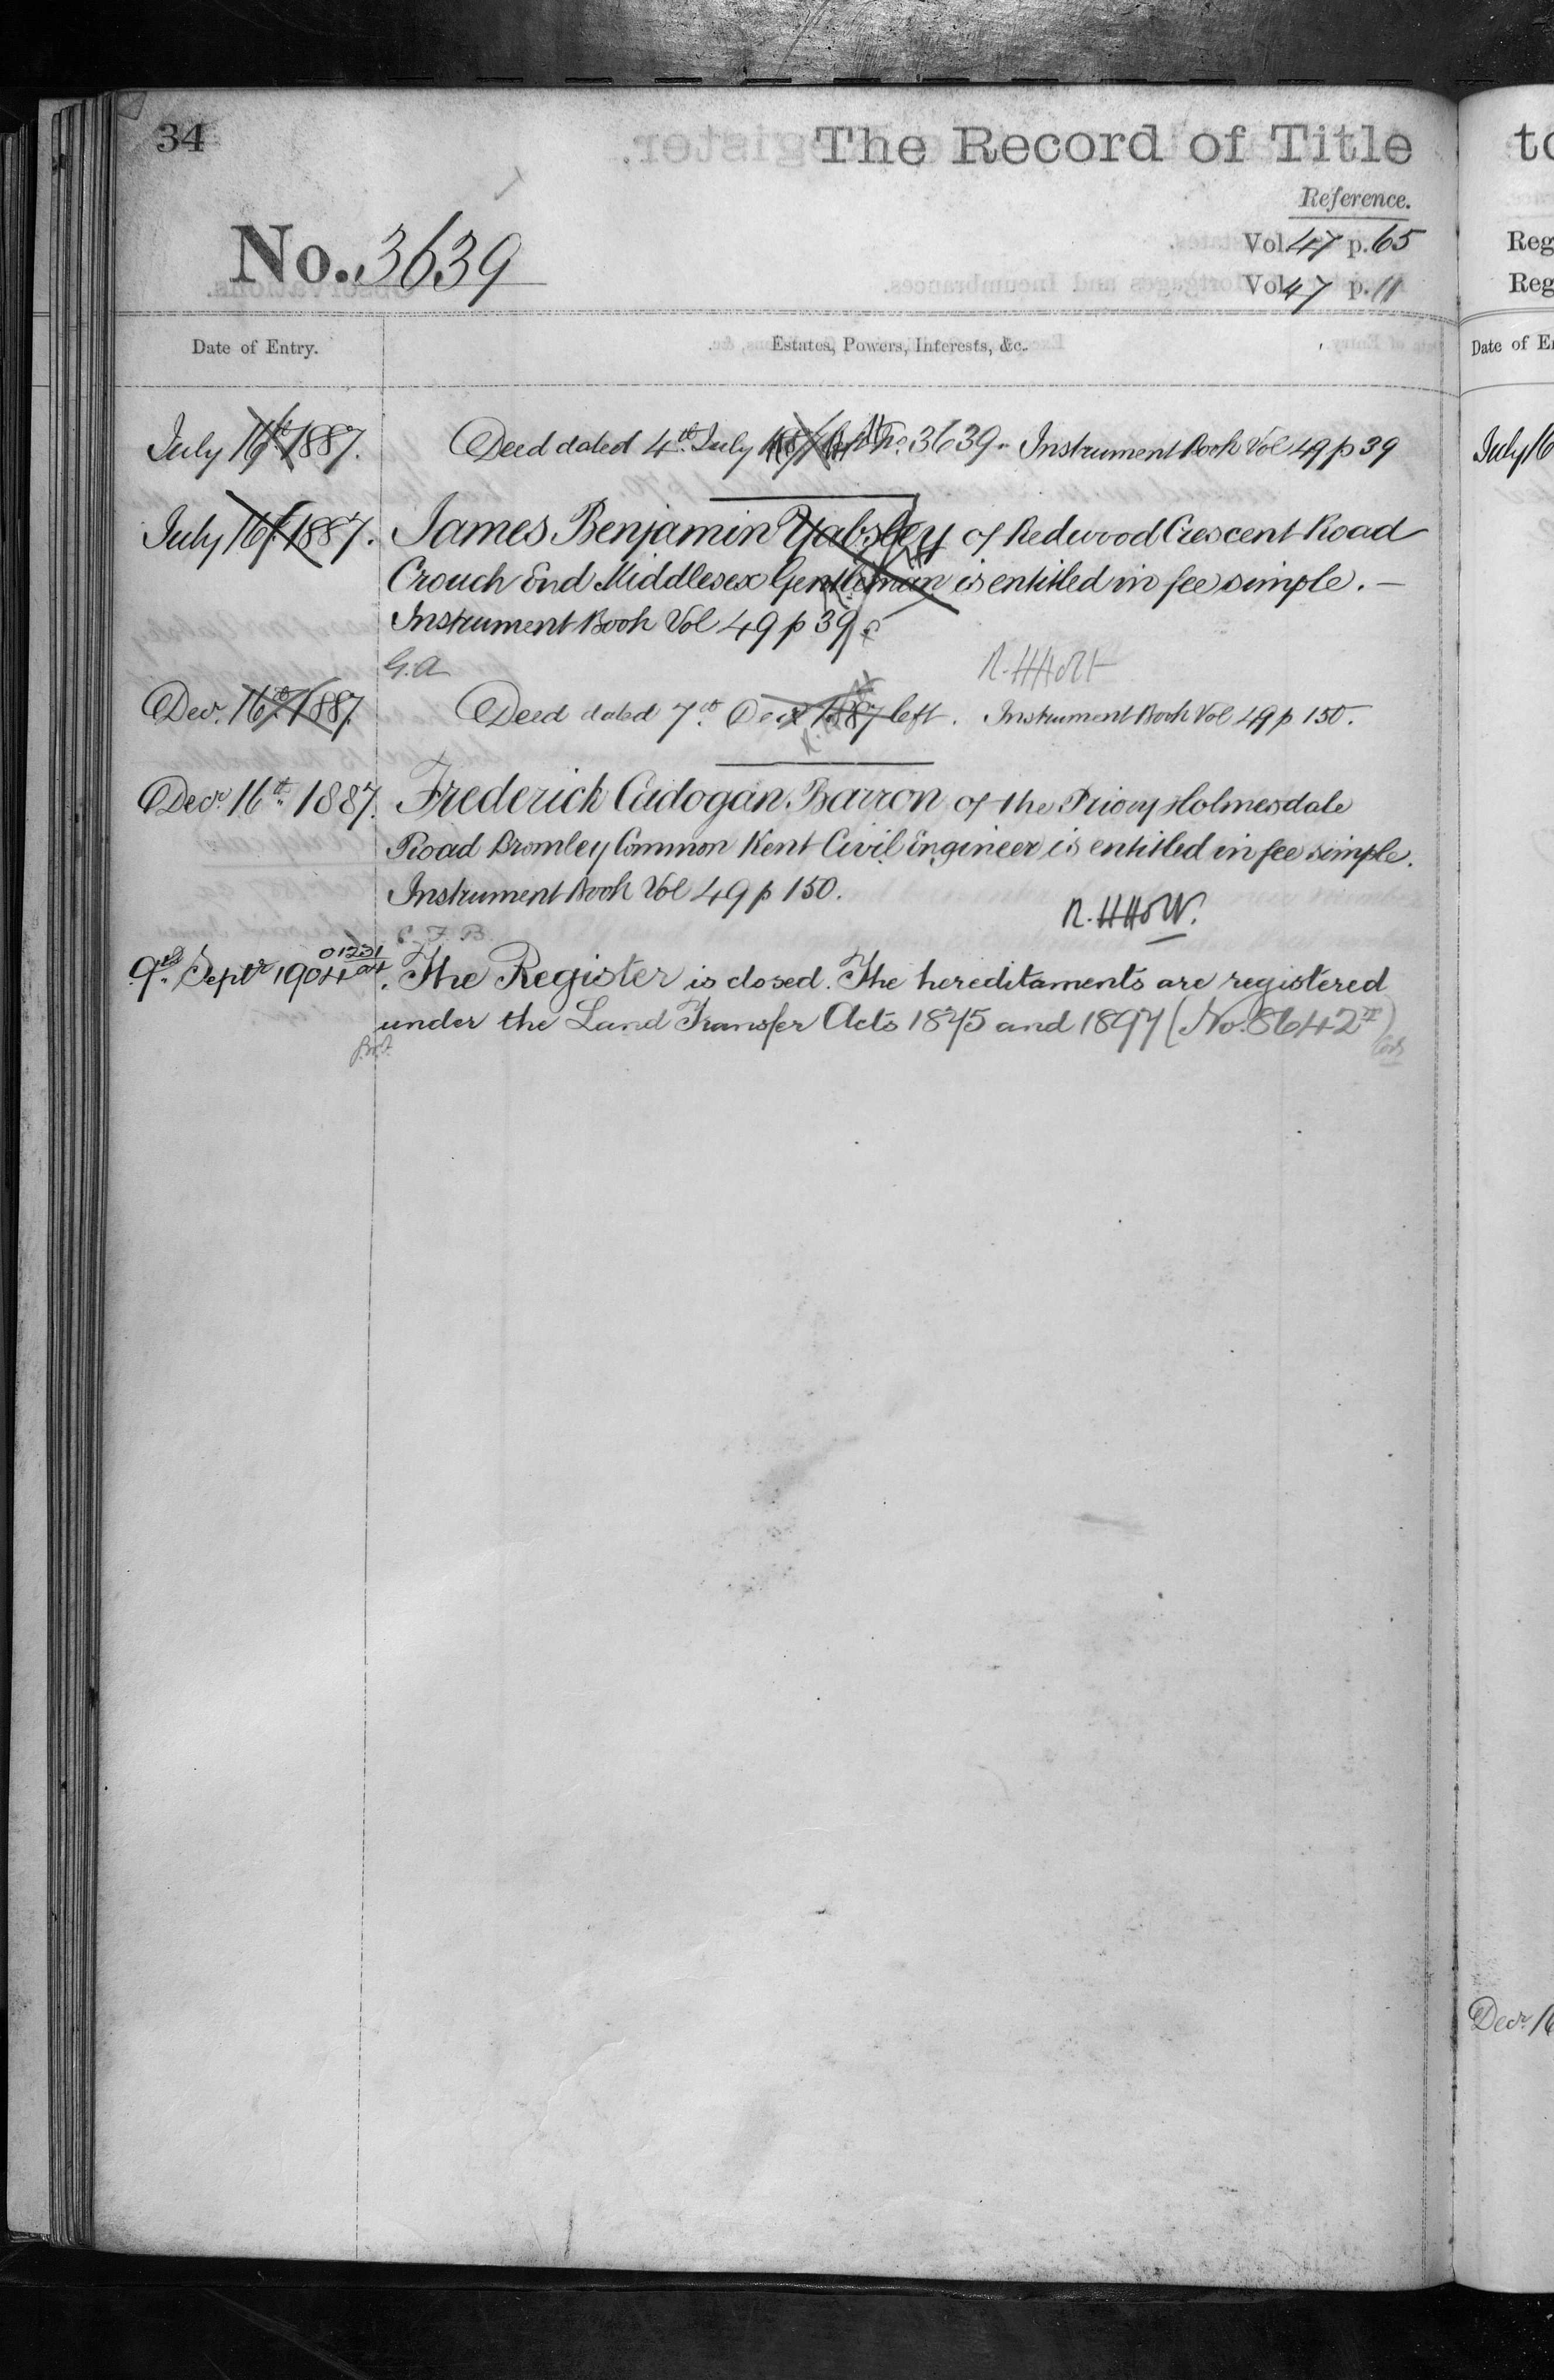 34
The Record of Title
to
Reference.
No. 3639
Vol. 47 p. 65
Vol. 47 p. 11
Reg
Reg
Date of Entry.
Estates, Powers, Interests, &c.
Date of E
July 16th 1887. Deed dated 4th July 1887 No. 3639. Instrument Book Vol 49 p 39
July 16
July 16th 1887. James Benjamin Yabsley of Redwood Crescent Road
Crouch End Middlesex Gentleman is entitled in fee simple. —
Instrument Book Vol 49 p 39
G.A
Decr. 16th 1887. Deed dated 7th Decr 1887 left. Instrument Book Vol 49 p 150.
Decr. 16th 1887. Frederick Cadogan Barron of the Priory Holmesdale
Road Bromley Common Kent Civil Engineer is entitled in fee simple.
Instrument Book Vol 49 p 150.
C.F.B.
9th Septr 1904. The Register is closed. The hereditaments are registered
under the Land Transfer Acts 1875 and 1897 (No. 8642)
Decr. 16